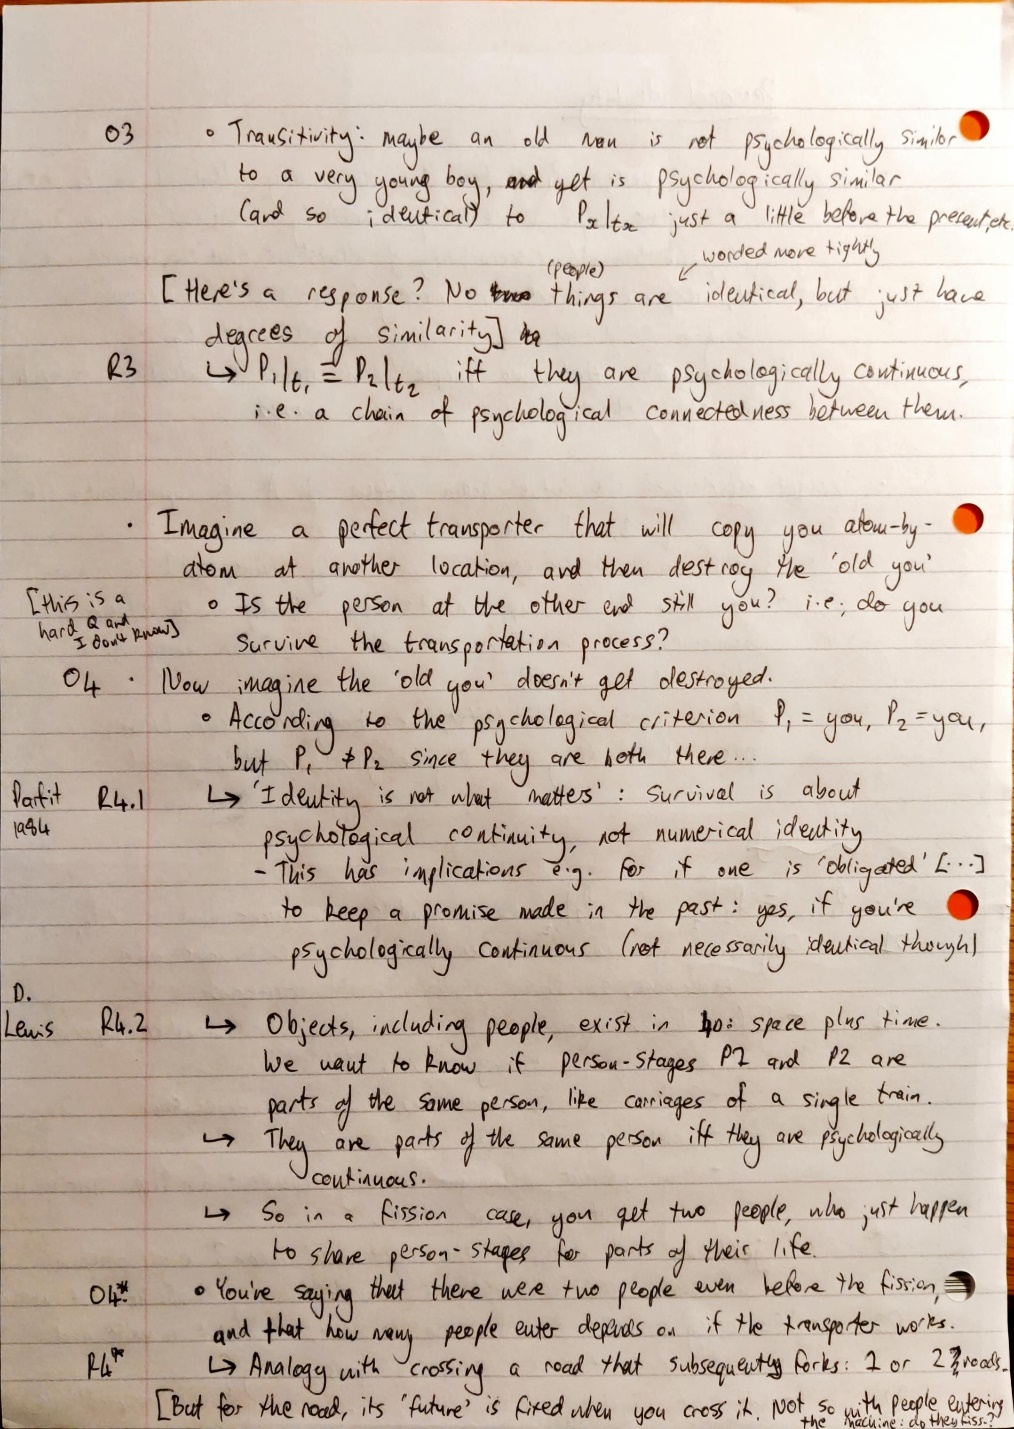 O3 ∘ Transitivity: maybe an old man is not psychologically similar
to a very young boy, and yet is psychologically similar
(and so identical) to Pₓ|tₓ just a little before the present, etc.
worded more tightly
(people)
[Here's a response? No two things are identical, but just have
degrees of similarity]
R3 ↳ P₁|t₁ = P₂|t₂ iff they are psychologically continuous,
i.e. a chain of psychological connectedness between them.
· Imagine a perfect transporter that will copy you atom-by-
atom at another location, and then destroy the 'old you'
[this is a
hard Q and
I don't know]
∘ Is the person at the other end still you? i.e., do you
survive the transportation process?
O4 · Now imagine the 'old you' doesn't get destroyed.
∘ According to the psychological criterion P₁ = you, P₂ = you,
but P₁ ≠ P₂ since they are both there...
Parfit R4.1 ↳ 'Identity is not what matters': survival is about
1984
psychological continuity, not numerical identity
- This has implications e.g. for if one is 'obligated' [...]
to keep a promise made in the past: yes, if you're
psychologically continuous (not necessarily identical though)
D.
Lewis R4.2 ↳ Objects, including people, exist in 4D: space plus time.
We want to know if person-stages P1 and P2 are
parts of the same person, like carriages of a single train.
↳ They are parts of the same person iff they are psychologically
continuous.
↳ So in a fission case, you get two people, who just happen
to share person-stages for parts of their life.
O4* ∘ You're saying that there were two people even before the fission,
and that how many people enter depends on if the transporter works.
R4* ↳ Analogy with crossing a road that subsequently forks: 1 or 2 roads.
[But for the road, its 'future' is fixed when you cross it. Not so with people entering
the machine: do they fiss.?